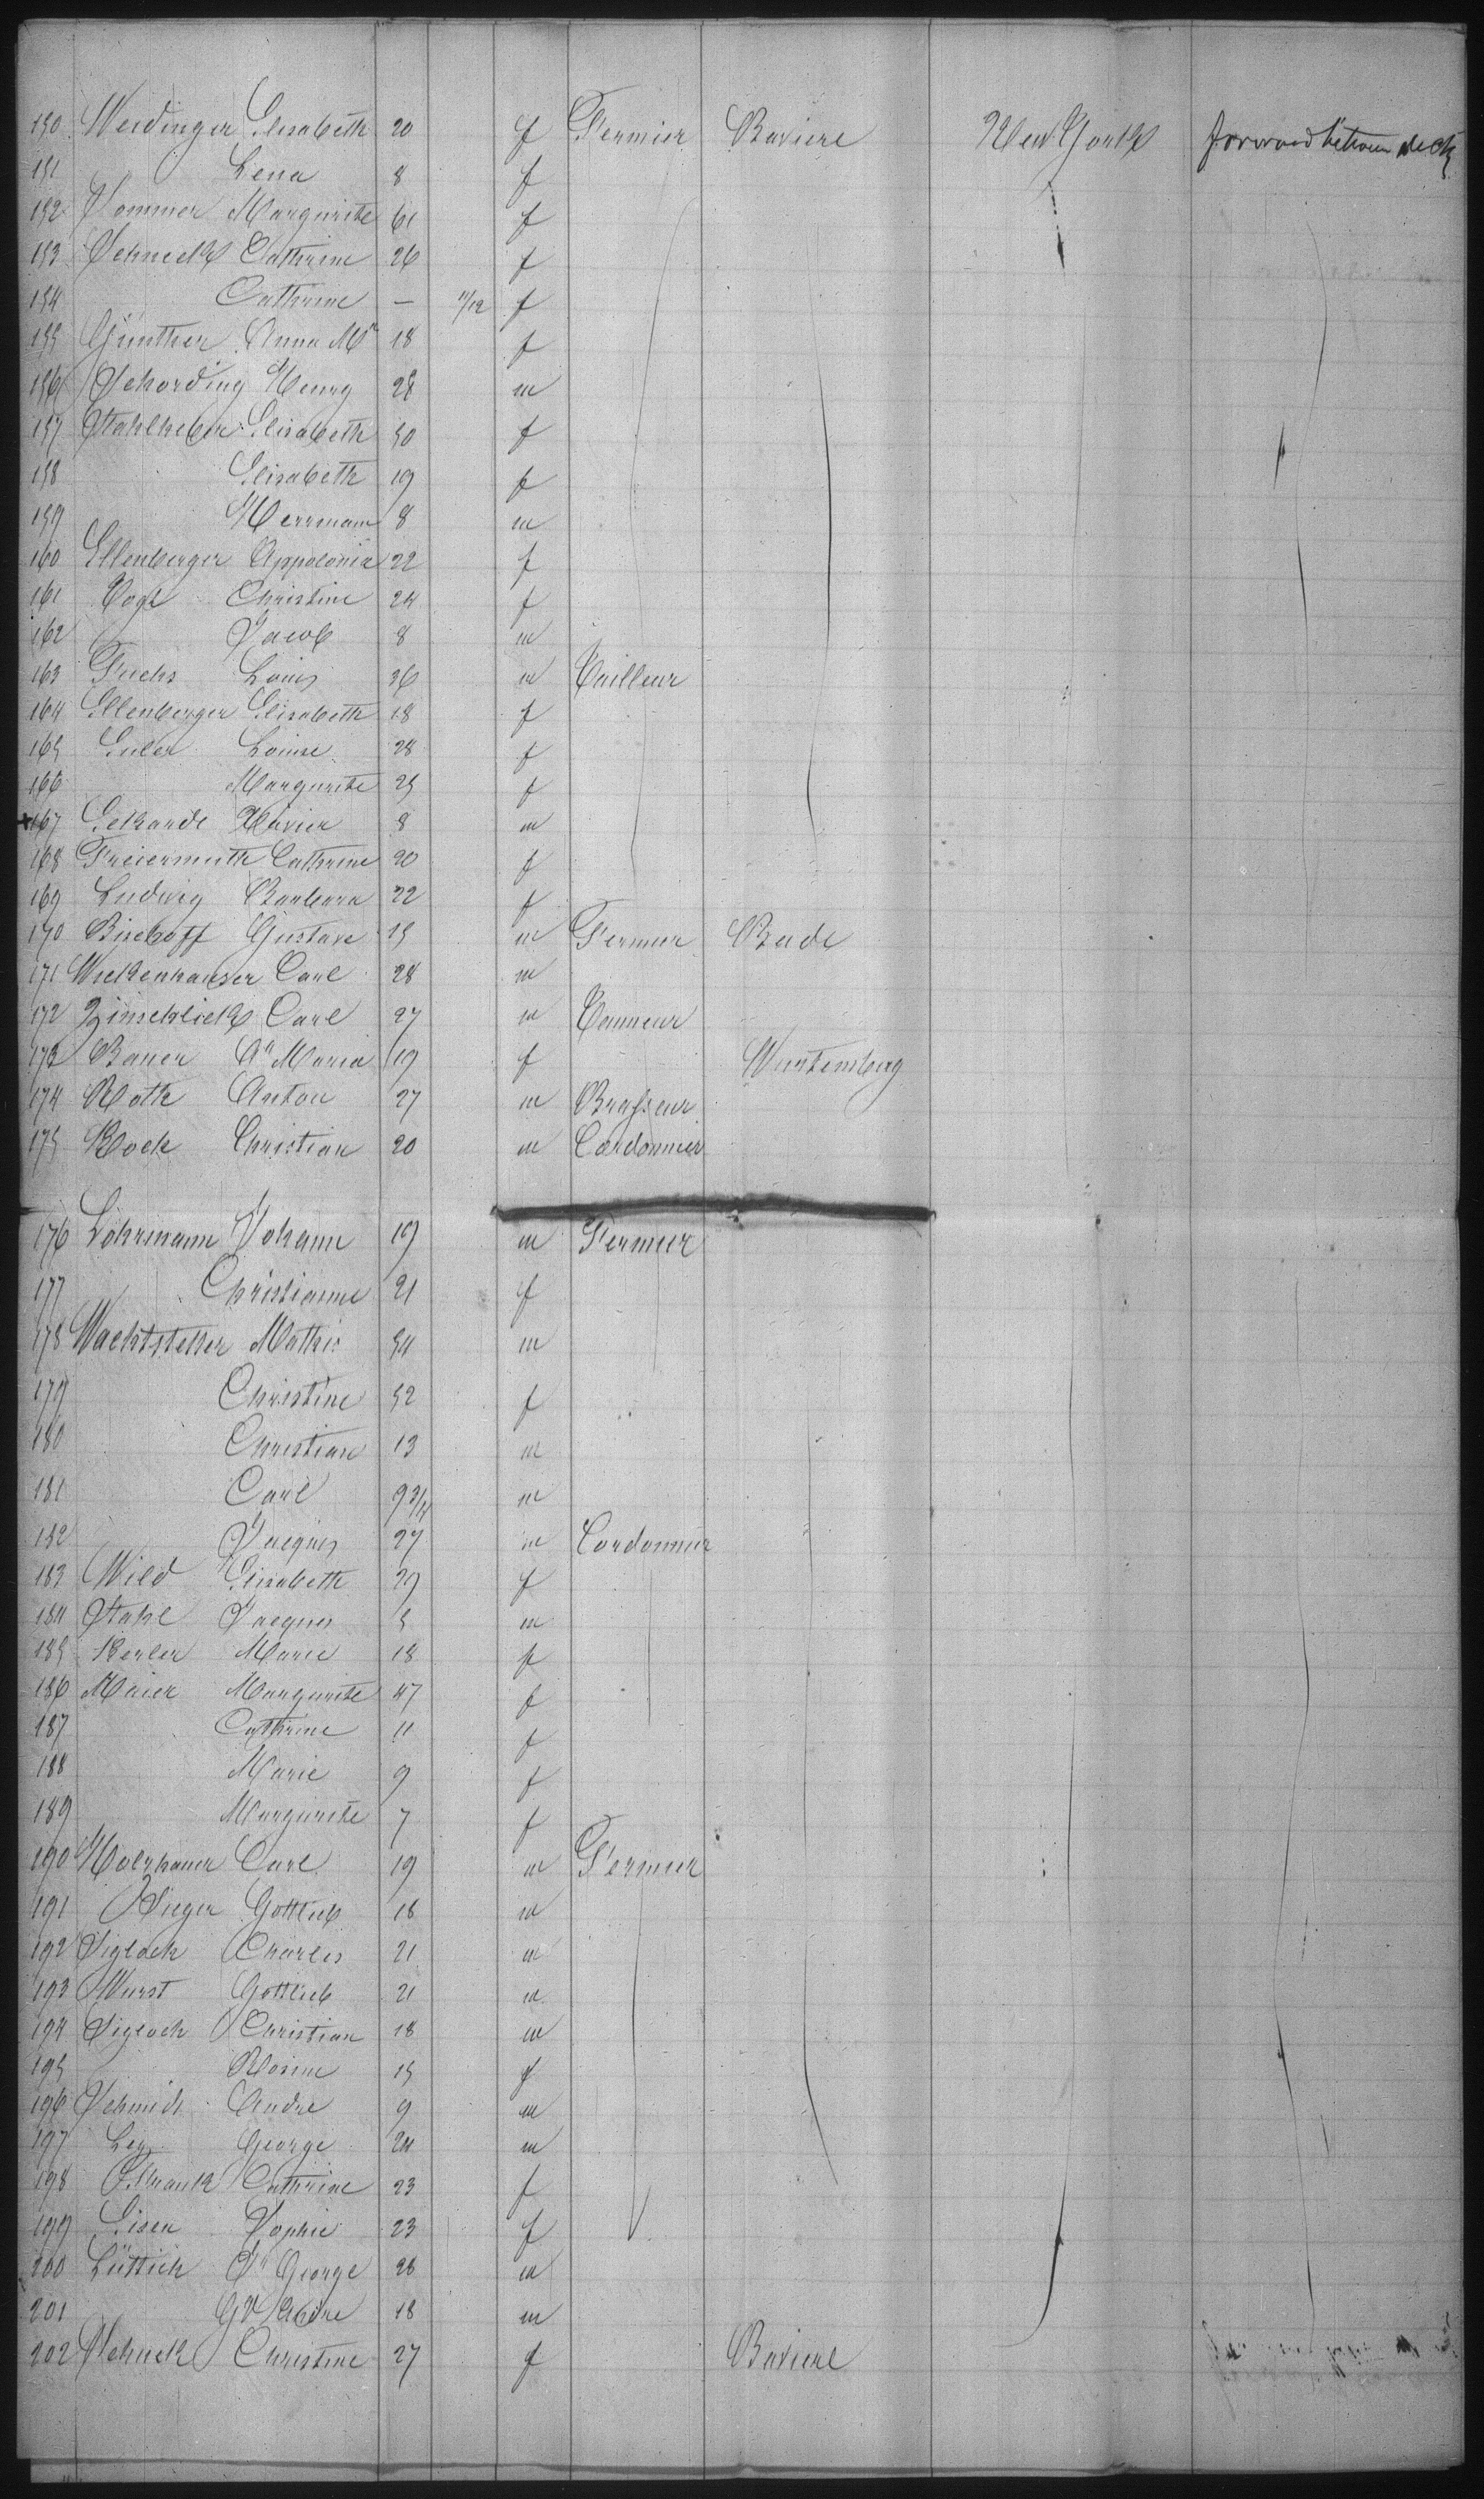 150 Weidinger Elisabeth 20 f Fermier Baviere New York forward between deck
151 Lena 8 f
152 Hommer Marguritte 61 f
153 Schneck Cathrine 26 f
154 Cathrine — 11/12 f
155 Günther Anna Ma 18 f
156 Schording Henry 28 m
157 Stahlheber Elisabeth 50 f
158 Elisabeth 19 f
159 Herrmann 8 m
160 Ellenberger Appolonia 22 f
161 Vogt Christine 24 f
162 Jacob 8 m
163 Fuchs Louis 36 m Tailleur
164 Ellenberger Elisabeth 18 f
165 Euler Louise 28 f
166 Marguritte 25 f
167 Eckardt Xavier 8 m
168 Freiermuth Cathrine 20 f
169 Ludwig Barbara 22 f
170 Bischoff Gustave 15 m Fermier Bade
171 Wickenhauser Carl 28 m
172 Zinschlick Carl 27 m Tanneur
173 Bauer Aa Maria 19 f Wurtemberg
174 Roth Anton 27 m Brasseur
175 Bock Christian 20 m Cordonnier
176 Lohrmann Johann 19 m Fermier
177 Christianne 21 f
178 Wachtstetter Mathis 54 m
179 Christine 52 f
180 Christian 13 m
181 Carl 9 3/4 m
182 Jacques 27 m Cordonnier
183 Wild Elisabeth 29 f
184 Stahl Jacques 5 m
185 Kerler Marie 18 f
186 Maier Marguritte 47 f
187 Cathrine 11 f
188 Marie 9 f
189 Marguritte 7 f
190 Holzhauer Carl 19 m Fermier
191 Rieger Gottlieb 18 m
192 Sigloch Charles 21 m
193 Wurst Gottlieb 21 m
194 Sigloch Christian 18 m
195 Rosine 15 f
196 Schmidt Andre 9 m
197 Ley George 24 m
198 Schrank Cathrine 23 f
199 Eisen Sophie 23 f
200 Lüttich Jn George 26 m
201 18 m
202 Schneck Christine 27 f Baviere